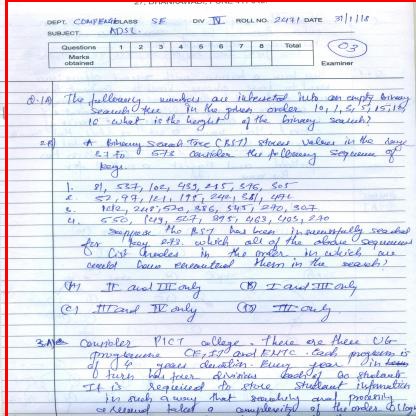 DEPT. COMPENGG CLASS SE DIV IV ROLL NO. 2471 DATE 31/1/18
SUBJECT ADSL
Questions 1 2 3 4 5 6 7 8 Total
Marks obtained
03
Examiner
Q.1A) The following numbers are inserted into an empty binary
search tree in the given order 10, 1, 3, 5, 15, 12,
16 what is the height of the binary search?
2.B) A Binary Search Tree (BST) stores values in the range
37 to 573 consider the following sequence of
keys.
1. 81, 537, 102, 439, 285, 376, 305
2. 52, 97, 121, 195, 242, 381, 472
3. 142, 248, 520, 386, 345, 270, 307
4. 550, 149, 507, 395, 463, 402, 270
suppose the BST has been unsuccessfully searched
for key 273. which all of the above sequences
list nodes in the order in which we
could have encountered them in the search?
(A) II and III only (B) I and III only
(C) III and IV only (D) III only
3.A) Consider PICT college. There are three UG
programme CE, IT and ENTC. Each program is
of 4 years duration. Every year in
turn has four division each of 60 students
It is required to store student information
in such a way that searching and processing
a record takes a complexity of the order